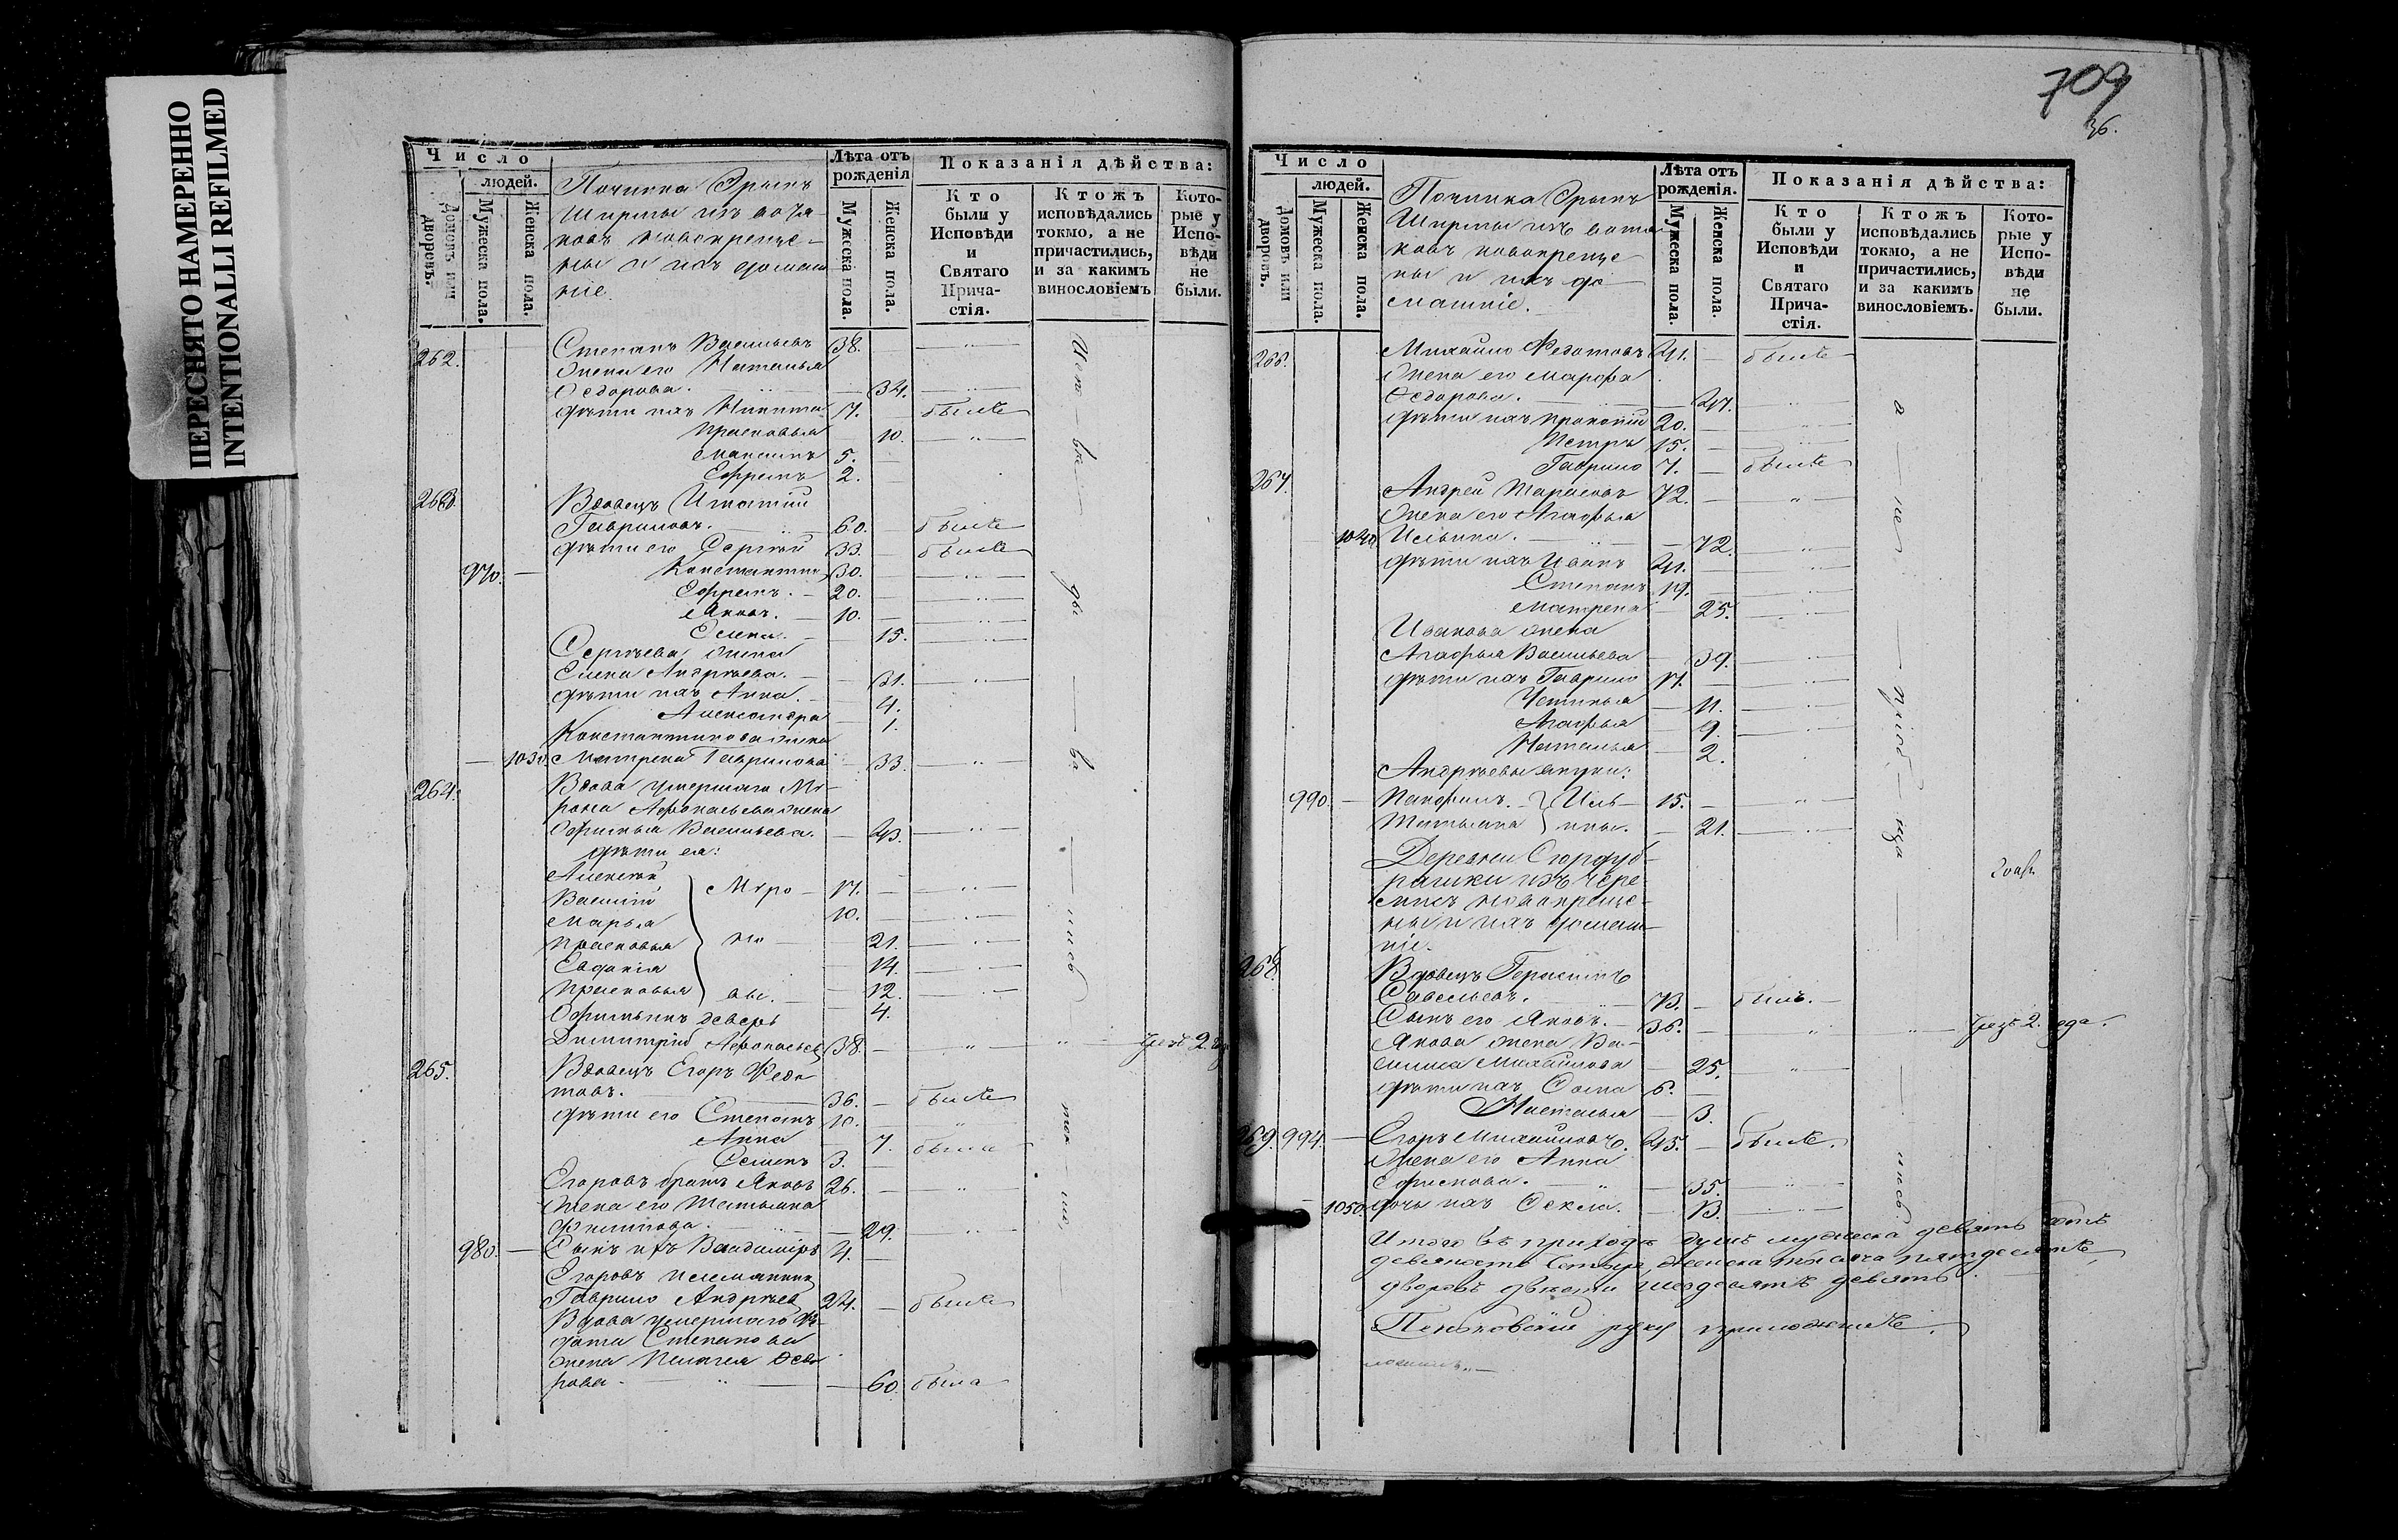 ПЕРЕСНЯТО НАМЕРЕННО
INTENTIONALLI REFILMED
Число
людей.
Домовъ или дворовъ.
Мужеска пола.
Женска пола.
Починка Орымъ
Ширмы изъ вотя-
ковъ новокреще-
ны и ихъ домаш-
ніе.
Лѣта отъ рожденія
Мужеска пола.
Женска пола.
Показанія дѣйства:
Кто были у Исповѣди и Святаго Прича-стія.
Ктожъ исповѣдались токмо, а не причастились, и за какимъ винословіемъ
Кото-рые у Испо-вѣди не были.
262. Степанъ Васильевъ 38.
Жена его Наталья
Ѳедорова. 34.
дѣти ихъ Никита 17. былъ
Прасковья 10.
Максимъ 5.
Ефремъ 2.
263. Вдовецъ Игнатій
Гавриловъ. 60. былъ
дѣти его Сергѣй 33. былъ
970. Константинъ 30.
Ефремъ. 20.
Яковъ. 10.
Елена. 15.
Сергѣева жена
Елена Андрѣева. 31.
дѣти ихъ Анна. 4.
Александра 1.
Константинова жена
1030. Матрена Гаврилова 33.
264. Вдова умершаго Ми-
рона Афонасьева жена
Офимья Васильева. 43.
дѣти ея:
Алексѣй Миро- 17.
Василій 10.
Марья 21.
Прасковья но- 14.
Евдокія 12.
Прасковья вы. 4.
Офимьинъ деверь
Димитрій Афонасьевъ 38. чрезъ 2. года
265. Вдовецъ Егоръ Федо
товъ. 36. былъ
дѣти его Степанъ 10.
Анна 7. была
Семенъ 3.
Егоровъ братъ Яковъ 26.
Жена его Татьяна
Филипова. 29.
980. Сынъ ихъ Владимiръ 4.
Егоровъ племянникъ
Гаврило Андрѣевъ 24. былъ
Вдова умершаго Фе-
дота Степанова
жена Пелагея Ѳедо
рова 60. была
709
36.
Число
людей.
Домовъ или дворовъ.
Мужеска пола.
Женска пола.
Починка Орымъ
Ширмы изъ вотя
ковъ новокреще-
ны и ихъ до
машніе.
Лѣта отъ рожденія.
Мужеска пола.
Женска пола.
Показанія дѣйства:
Кто были у Исповѣди и Святаго Прича-стія.
Ктожъ исповѣдались токмо, а не причастились, и за какимъ винословіемъ.
Кото-рые у Испо-вѣди не были.
266. Михайло Федотовъ 41. былъ
Жена его Марфа
Ѳедорова. 47.
дѣти ихъ Прокопій 20.
Петръ 15.
Гаврило 7. былъ
267. Андрей Тарасовъ 72.
Жена его Агафья
1040. Ильина. 72.
дѣти ихъ Иванъ 41.
Степанъ 19.
Матрена 25.
Иванова жена
Агафья Васильева 39.
дѣти ихъ Гаврило 17.
Устинья 11.
Агафья 9.
Наталья 2.
Андрѣевы внуки:
990. Панфилъ. Иль- 15.
Татьяна ины. 21.
Деревни
изъ чере-
мисъ новокреще-
ны и ихъ домаш-
ніе.
268. Вдовецъ Герасимъ
Савельевъ. 73. былъ.
Сынъ его Яковъ. 36. чрезъ 2. года.
Якова жена Ва-
силиса Михайлова 25.
дѣти ихъ 6.
Настасья 3.
269. 994. Егоръ Михайловъ. 45. былъ.
Жена его Анна
Ефимова. 35.
1050. дочь ихъ Ѳекла. 13.
Итого въ приходѣ душъ мужеска девять сотъ
девяносто четыре, женска тысяча пятдесятъ,
дворовъ двѣсти шесдесятъ девять.
руку приложилъ.